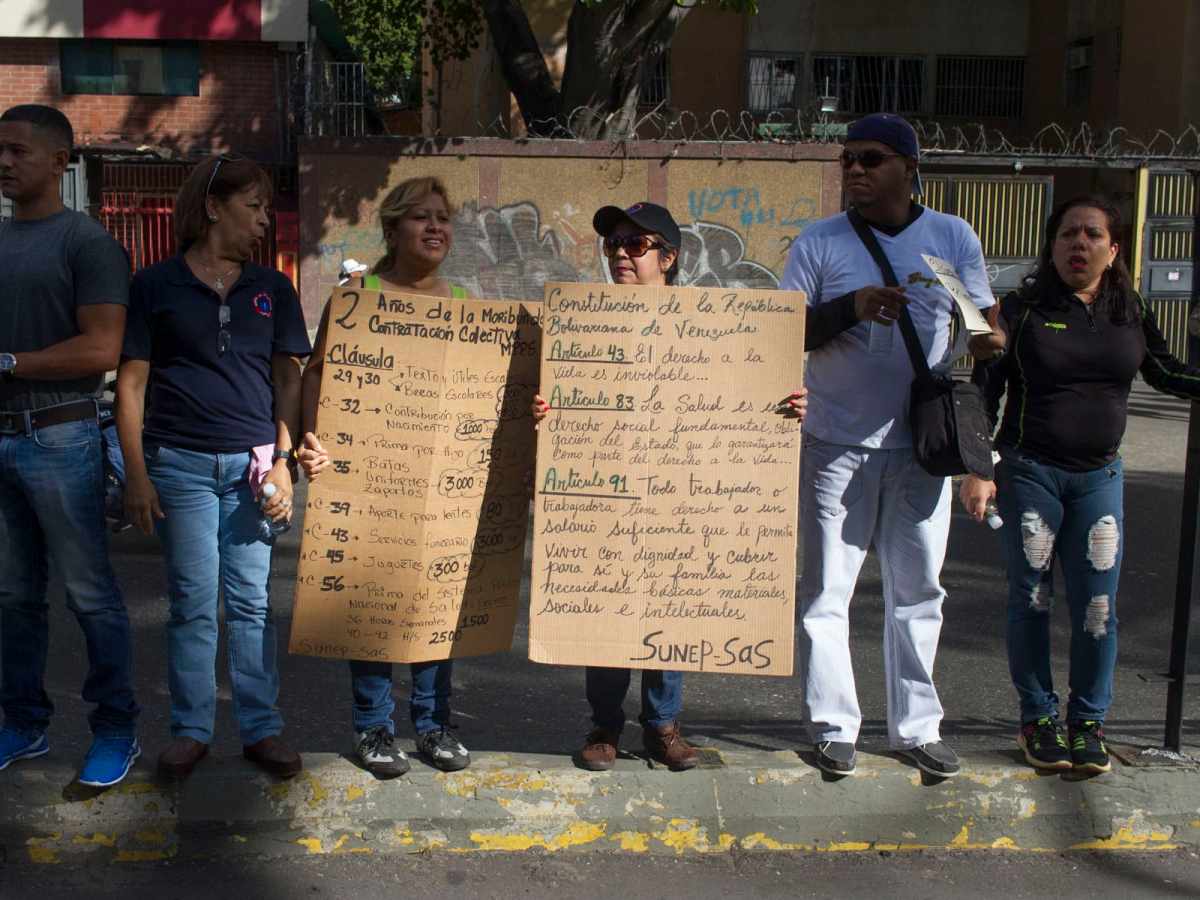 VOTA
2 Años de la Moribunda
Contratación Colectiva
MPPS
Cláusula
29 y 30 Texto y Utiles Escola
Becas Escolares
C-32 → Contribución por
Nacimiento 1000
C-34 → Prima por Hijo 150
35 → Batas
Uniformes 3000
Zapatos
C-39 → Aporte para lentes 80
C-43 → Servicios funerario 3000
C-45 → Juguetes 300 Bs
C-56 → Prima del Sistema
Nacional de Salud
36 Horas Semanales 1500
40-42 H/S 2500
Sunep-sas
Constitución de la República
Bolivariana de Venezuela
Artículo 43. El derecho a la
vida es inviolable...
Artículo 83 La Salud es un
derecho social fundamental, obli-
gación del Estado, que lo garantizará
como parte del derecho a la vida...
Artículo 91. Todo trabajador o
trabajadora tiene derecho a un
salario suficiente que le permita
vivir con dignidad y cubrir
para sí y su familia las
necesidades básicas materiales,
sociales e intelectuales.
SUNEP-SaS